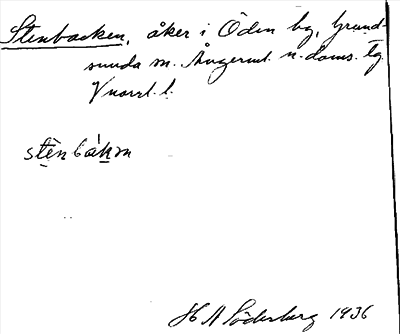 Stenbacken, åker i Öden by, Grund-
sunda sn. Ångerml. n. doms. tg
Vnorrl. l.
stènbák̲m
H A Söderberg 1936